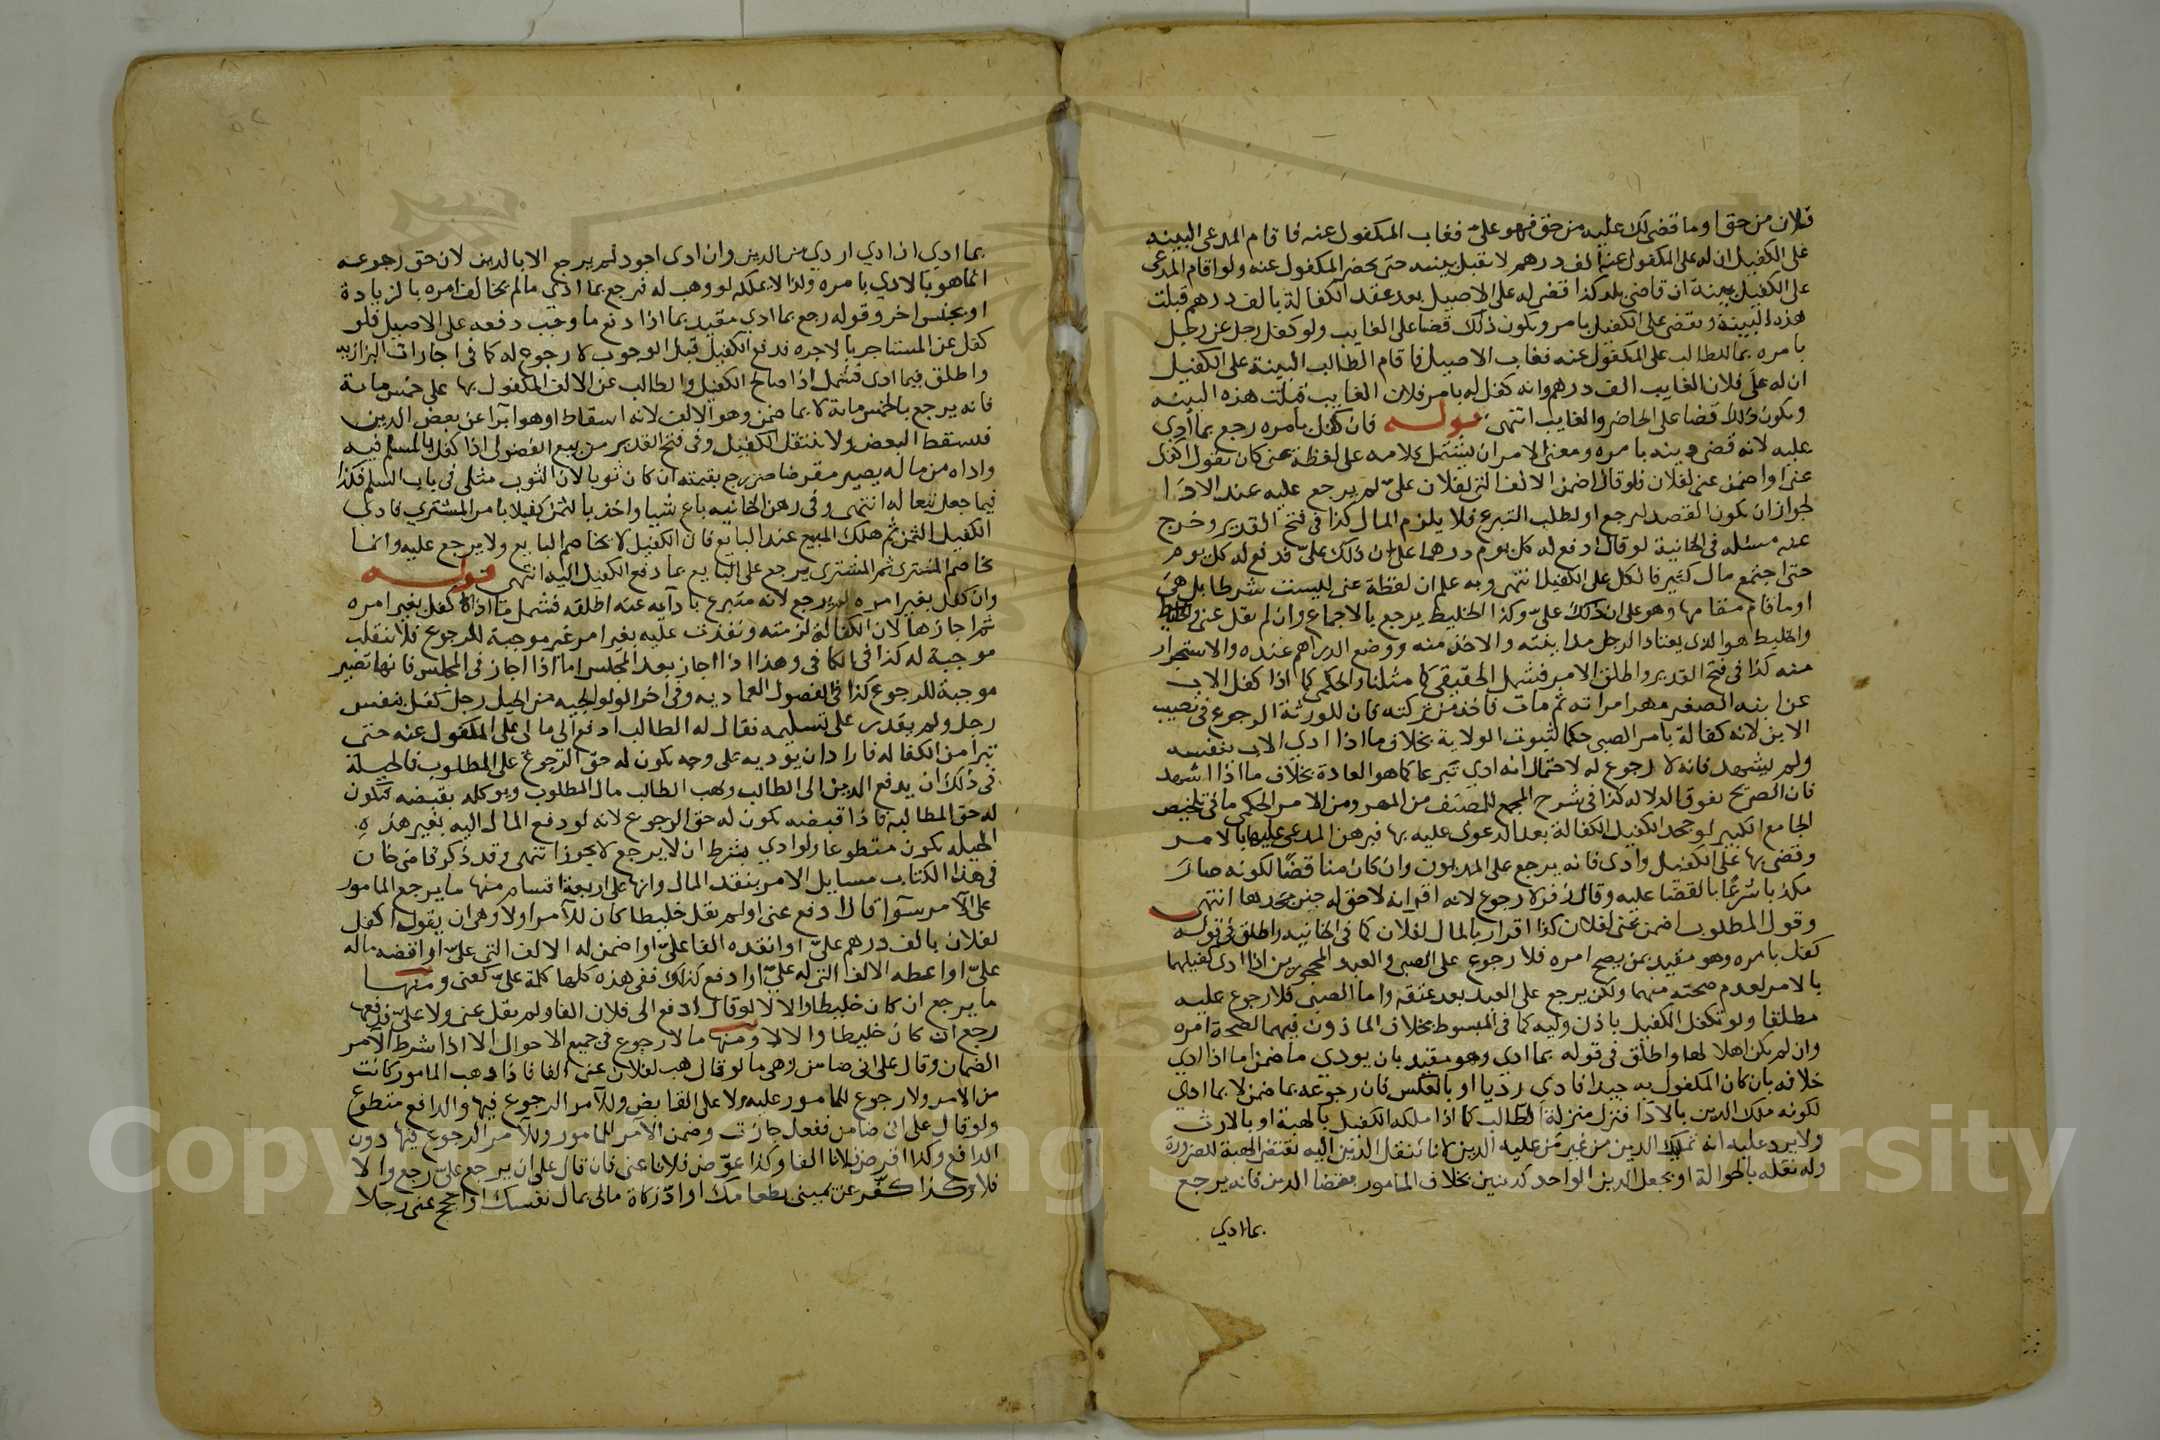 فلان من حق او ما قضى لك عليه من حق فهو علي فغاب المكفول عنه فاقام المدعى البينه
على الكفيل ان له على المكفول عنه الف درهم لا تقبل بينته حتى يحضر المكفول عنه ولو اقام المدعى
على الكفيل بينة ان قاضى بلد كذا قضى له على الاصيل بعد عقد الكفالة بالف درهم قبلت
هذه البينة ويقضى على الكفيل بامره ويكون ذلك قضا على الغايب ولو كفل رجل عن رجل
بامره بما للطالب على المكفول عنه فغاب الاصيل فاقام الطالب البينة على الكفيل
ان له على فلان الغايب الف درهم وانه كفل له بامر فلان الغايب قبلت هذه البينه
ويكون ذلك قضا على الحاضر والغايب انتهى قوله فان كفل بامره رجع بما ادي
عليه لانه قضى دينه بامره ومعنى الامر ان يشتمل كلامه على لفظة عنى كان يقول اكفل
عنى او اضمن عنى لفلان فلو قال اضمن الالف التى لفلان علىّ لم يرجع عليه عند الادا
لجواز ان يكون القصد ليرجع او لطلب التبرع فلا يلزم المال كذا فى فتح القدير وخرج
عنه مسئله فى الخانية لو قال ادفع له كل يوم درهما على ان ذلك علىّ فدفع له كل يوم
حتى اجتمع مال كثير فالكل على الكفيل انتهى وبه علم ان لفظة عنى ليست شرطا بل هى
او ما قام مقامها وهو على ان ذلك علىّ وكذا الخليط يرجع بالاجماع وان لم يقل عنى
والخليط هو الذى يعتاد الرجل مداينته والاخذ منه ووضع الدراهم عنده والاستجرار
منه كذا فى فتح القدير واطلق الامر فشمل الحقيقى كما مثلنا والحكمى كما اذا كفل الاب
عن ابنه الصغير مهر امراته ثم مات فاخذ من تركته فان للورثة الرجوع فى نصيب
الابن لانه كفالة بامر الصبى حكما لثبوت الولاية بخلاف ما اذا ادي الاب بنفسه
ولم يشهد فانه لا رجوع له لاحتمال انه ادي تبرعا كما هو العادة بخلاف ما اذا اشهد
فان الصريح يفوق الدلاله كذا فى شرح المجمع للمصنف من المهر ومن الامر الحكمى ما فى تلخيص
الجامع الكبير لو جحد الكفيل الكفالة بعد الدعوى عليه بها فبرهن المدعى عليها بالامر
وقضى بها على الكفيل وادى فانه يرجع على المديون وان كان مناقضا لكونه صار
مكذبا شرعًا بالقضا عليه وقال زفر لا رجوع لانه اقر انه لا حق له حين جحدها انتهى
وقول المطلوب اضمن عنى لفلان كذا اقرار بالمال لفلان كما فى الخانيه واطلق فى قوله
كفل بامره وهو مقيد بمن يصح امره فلا رجوع على الصبى والعبد المحجورين اذا ادى كفيلهما
بالامر لعدم صحته منهما ولكن يرجع على العبد بعد عتقه واما الصبى فلا رجوع عليه
مطلقا ولو تكفل الكفيل باذن وليه كما فى المبسوط بخلاف الماذون فيهما لصحة امره
وان لم يكن اهلا لها واطلق فى قوله بما ادي وهو مقيد بان يودى ما ضمن اما اذا ادي
خلافه بان كان المكفول به جيدا فادي رديا او بالعكس فان رجوعه بما ضمن لا بما ادى
لكونه ملك الدين بالادا فنزل منزلة الطالب كما اذا ملكه الكفيل بالهبة او بالارث
ولا يرد عليه انه تمليك الدين من غير من عليه الدين لانا ننقل الدين اليه بمقتضى الهبة للضرورة
وله نقله بالحوالة او يجعل الدين الواحد كدينين بخلاف المامور بقضا الدين فانه يرجع
بما ادي
بما ادي ان ادي اردي من الدين وان ادى اجود لم يرجع الا بالدين لان حق رجوعه
انما هو بالادي بامره ولذا لا يملكه لو وهب له فيرجع بما ادي مالم يخالف امره بالزيادة
او بجنس اخر وقوله رجع بما ادي مقيد بما اذا دفع ما وجب دفعه على الاصيل فلو
كفل عن المستاجر بالاجره فدفع الكفيل قبل الوجوب لا رجوع له كما فى اجارات البزازيه
واطلق فيما ادى فشمل اذا صالح الكفيل الطالب عن الالف المكفول بها على خمس ماية
فانه يرجع بالخمس ماية لا بما ضمن وهو الالف لانه اسقاط او هو ابرآ عن بعض الدين
فلسقط البعض ولا ينتقل للكفيل وفى فتح القدير من بيع الفضولى اذا كفل بالمسلم فيه
واداه من ماله يصير مقرضا حتى يرجع بقيمته ان كان ثوبا لان الثوب مثلى فى باب السلم فكذا
فيما جعل تبعا له انتهى وفى رهن الخانيه باع شيا واخذ بالثمن كفيلا بامر المشتري فادي
الكفيل الثمن ثم هلك المبيع عند البايع فان الكفيل لا يخاصم البايع ولا يرجع عليه وانما
يخاصم المشتري ثم المشترى يرجع على البايع بما دفع الكفيل اليه انتهى قوله
وان كفل بغير امره لم يرجع لانه متبرع بادآيه عنه اطلقه فشمل ما اذا كفل بغير امره
ثم اجازها لان الكفالة لزمته ونفذت عليه بغير امر غير موجبة للرجوع فلا تنقلب
موجبة له كذا فى الكافى وهذا اذا اجاز بعد المجلس اما اذا اجاز فى المجلس فانها تصير
موجبة للرجوع كذا فى الفصول العماديه وفى اخر الولوالجيه من الحيل رجل كفل بنفس
رجل ولم يقدر على تسليمه فقال له الطالب ادفع الى مالى على المكفول عنه حتى
تبرا من الكفاله فاراد ان يوديه على وجه يكون له حق الرجوع على المطلوب فالحيلة
فى ذلك ان يدفع الدين الى الطالب ويهب الطالب مال المطلوب ويوكله بقبضه فيكون
له حق المطالبه فاذا قبضه يكون له حق الرجوع لانه لو دفع المال اليه بغير هذه
الحيله يكون متطوعا ولو ادي بشرط ان لا يرجع لا يجوز انتهى وقد ذكر قاضى خان
فى هذا الكتاب مسايل الامر بنقد المال وانها على اربعة اقسام منها ما يرجع المامور
على الآمر سوآ قال ادفع عنى او لم يقل خليطا كان للآمر اولا وهى ان يقول اكفل
لفلان بالف درهم علىّ او انقده الفا علىّ او اضمن له الالف التى علىّ او اقضه ماله
علىّ او اعطه الالف التى له علىّ او ادفع كذلك ففى هذه كلها كلمة علىّ كعنى ومنها
ما يرجع ان كان خليطا والا لا لو قال ادفع الى فلان الفا ولم يقل عنى ولا علىّ فدفعها
رجع ان كان خليطا والا لا ومنها ما لا رجوع فى جميع الاحوال الا اذا شرط الآمر
الضمان وقال على انى ضامن وهى ما لو قال هب لفلان عنى الفا فاذا وهب المامور كانت
من الآمر ولا رجوع للمامور عليه ولا على القابض وللآمر الرجوع فيها والدافع متطوع
ولو قال على انى ضامن ففعل جازت وضمن الآمر للمامور وللآمر الرجوع فيها دون
الدافع وكذا اقرض فلانا الفا وكذا عوّض فلانا عنى فان قال على ان يرجع علىّ رجع والا
فلا وكذا كفّر عن يمينى بطعامك او ادّ زكاة مالى بمال نفسك او احجج عنى رجلا